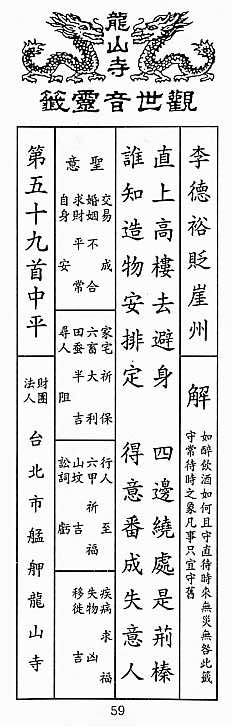 龍山寺
觀世音靈籤
李德裕貶崖州
解
如醉飲酒如何且守直待時來無災無咎此籤
守常待時之象凡事只宜守舊
直上高樓去避身 四邊繞處是荊榛
誰知造物安排定 得意番成失意人
聖意
交易 成
婚姻 不合
求財 平常
自身 安
家宅 祈保
六畜 大利
田蚕 半吉
尋人 阻
行人 至
六甲 祈福
山坟 吉
訟詞 虧
疾病 求福
失物 凶
移徙 吉
第五十九首中平
財團
法人
台北市艋舺龍山寺
59